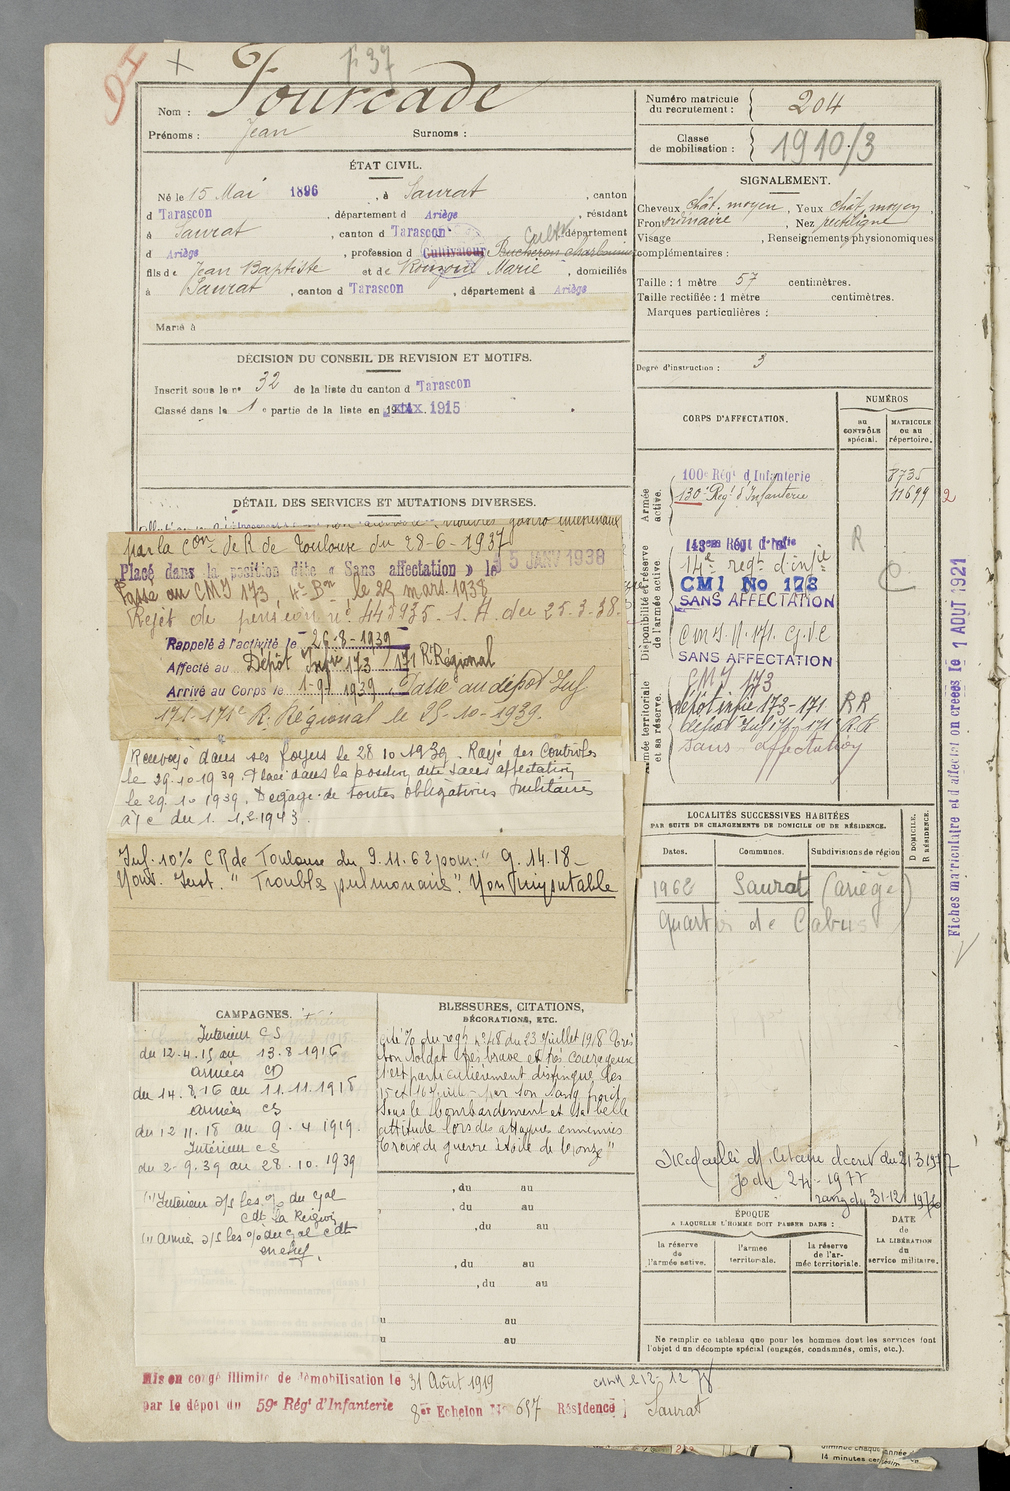 F 37
Nom : Fourcade
Prénoms : Jean Surnoms :
Numéro matricule
du recrutement : 204
Classe
de mobilisation : 1910/3
ÉTAT CIVIL.
Né le 15 Mai 1896, à Saurat, canton
d Tarascon, département d Ariège, résidant
à Saurat, canton d Tarascon, département
d Ariège, profession d Cultivateur Bucheron charbonnier Cultr
fils de Jean Baptiste et de Marie, domiciliés
à Saurat, canton d Tarascon, département d Ariège
Marié à
SIGNALEMENT.
Cheveux chât. moyen, Yeux chât. moyen,
Front ordinaire, Nez rectiligne
Visage, Renseignements physionomiques
complémentaires :
Taille : 1 mètre 57 centimètres.
Taille rectifiée : 1 mètre centimètres.
Marques particulières :
Degré d'instruction : 3
DÉCISION DU CONSEIL DE REVISION ET MOTIFS.
Inscrit sous le n° 32 de la liste du canton d Tarascon
Classé dans la 1e partie de la liste en 1915
DÉTAIL DES SERVICES ET MUTATIONS DIVERSES.
par la Con de R de Toulouse du 28-6-1937
Placé dans la position dite « Sans affectation » le 15 JANV 1938
Passe au CMI 173 4e Bon le 28 mars 1938
Rejet de pension n° 443935. S. A. du 25.3.38.
Rappelé à l'activité le 26-8-1939
Affecté au Dépôt Infie 173 / 171 R Régional
Arrivé au Corps le 1-9-1939. Passe au dépôt Inf
171-171e R. Régional le 25-10-1939.
Renvoyé dans ses foyers le 28 10 1939. Rayé des Contrôles
le 29.10.1939. Placé dans la position dite sans affectation
le 29.10.1939. Dégagé de toutes obligations militaires
à/c du 1.12.1943.
Inf. 10% C R de Toulouse du 9.11.62 pour : " G. 14.18 -
Troubles pulmonaires". Non Imputable
CORPS D'AFFECTATION.
NUMÉROS
au
CONTRÔLE
spécial.
MATRICULE
ou au
répertoire.
Armée
active.
100e Régt d'Infanterie 8735
130e Régt d'Infanterie 11699 2
Disponibilité et réserve
de l'armée active.
143eme Régt d'Infie R
14e regt d'infie
CMI No 173
SANS AFFECTATION
SANS AFFECTATION
Armée territoriale
et sa réserve.
CMI 173
dépôt infie 173-171 RR
dépôt Inf 171-171 R.R
Sans affectation
Fiches matriculaire et d'affectation créées le 1 AOUT 1921
LOCALITÉS SUCCESSIVES HABITÉES
PAR SUITE DE CHANGEMENTS DE DOMICILE OU DE RÉSIDENCE.
Dates. Communes. Subdivisions de région
D DOMICILE.
R RÉSIDENCE.
1962 Saurat (Ariège)
quartier de Cabus
Médaille Militaire décret du 21 3 1977
rang du 31-12-1976
CAMPAGNES.
Intérieur CS
du 12.4.15 au 13.8.1916
armées CD
du 14.8.16 au 11.11.1918
armées CS
du 12.11.18 au 9.4.1919.
Intérieur CS
du 2-9.39 au 28.10.1939
Intérieur s/s les o/ du Gal
Cdt la Région
Armée s/s les o/ du Gal Cdt
en chef.
BLESSURES, CITATIONS,
DÉCORATIONS, ETC.
Cité % du regt n° 48 du 23 Juillet 1918 "Très
bon soldat très brave et très courageux
s'est particulièrement distingué les
15 et 16 Juillet par son sang froid
sous le bombardement et sa belle
attitude lors des attaques ennemies
Croix de guerre étoile de bronze"
, du au
, du au
, du au
, du au
, du au
u au
u au
ÉPOQUE
A LAQUELLE L'HOMME DOIT PASSER DANS :
la réserve
de
l'armée active.
l'armée
territoriale.
la réserve
de l'ar-
mée territoriale.
DATE
de
LA LIBÉRATION
du
service militaire.
Ne remplir ce tableau que pour les hommes dont les services font
l'objet d'un décompte spécial (engagés, condamnés, omis, etc.).
Mis en congé illimité de démobilisation le 31 Août 1919
par le dépôt du 59e Régt d'Infanterie 8er Echelon No 657 Résidence Saurat
14 minutes